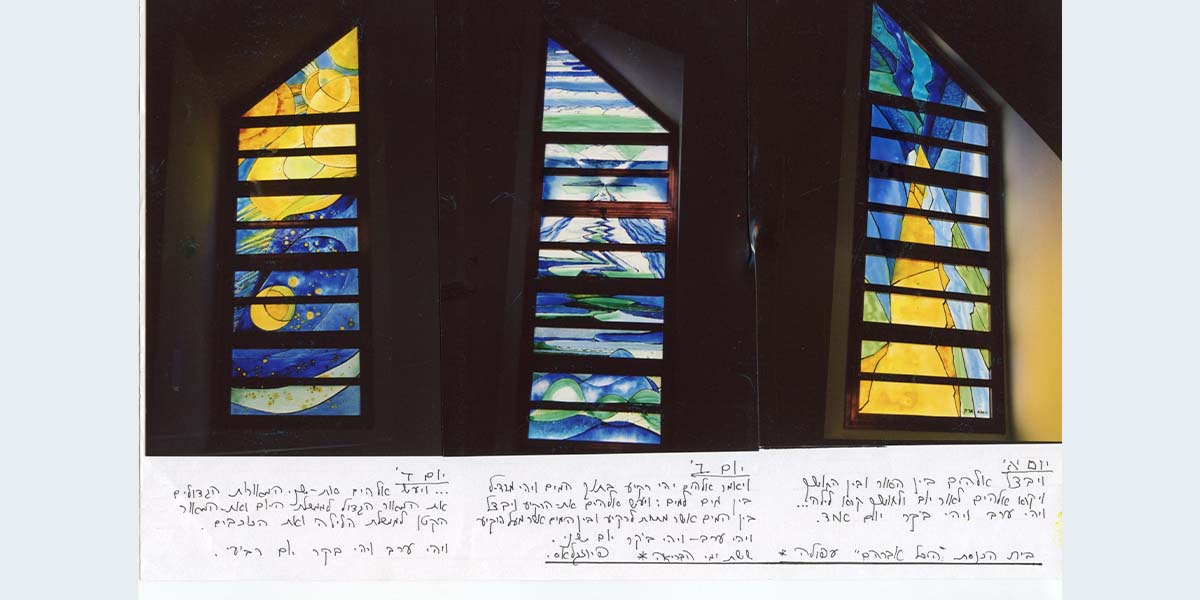 יום א'
ויבדל אלהים בין האור ובין החושך
ויקרא אלהים לאור יום ולחושך קרא לילה...
ויהי ערב ויהי בקר יום אחד.
יום ב'
ויאמר אלהים יהי רקיע בתוך המים ויהי מבדיל
בין מים למים: ויעש אלהים את הרקיע ויבדל
בין המים אשר מתחת לרקיע ובין המים אשר מעל הרקיע
ויהי ערב – ויהי בקר יום שני.
יום ד'
... ויעש אלהים את-שני המאורות הגדולים
את המאור הגדול לממשלת היום ואת המאור
הקטן לממשלת הלילה ואת הכוכבים.
ויהי ערב ויהי בקר יום רביעי.
בית הכנסת "היכל אברהם" עפולה * ששת ימי הבריאה * פיוזגלאס.